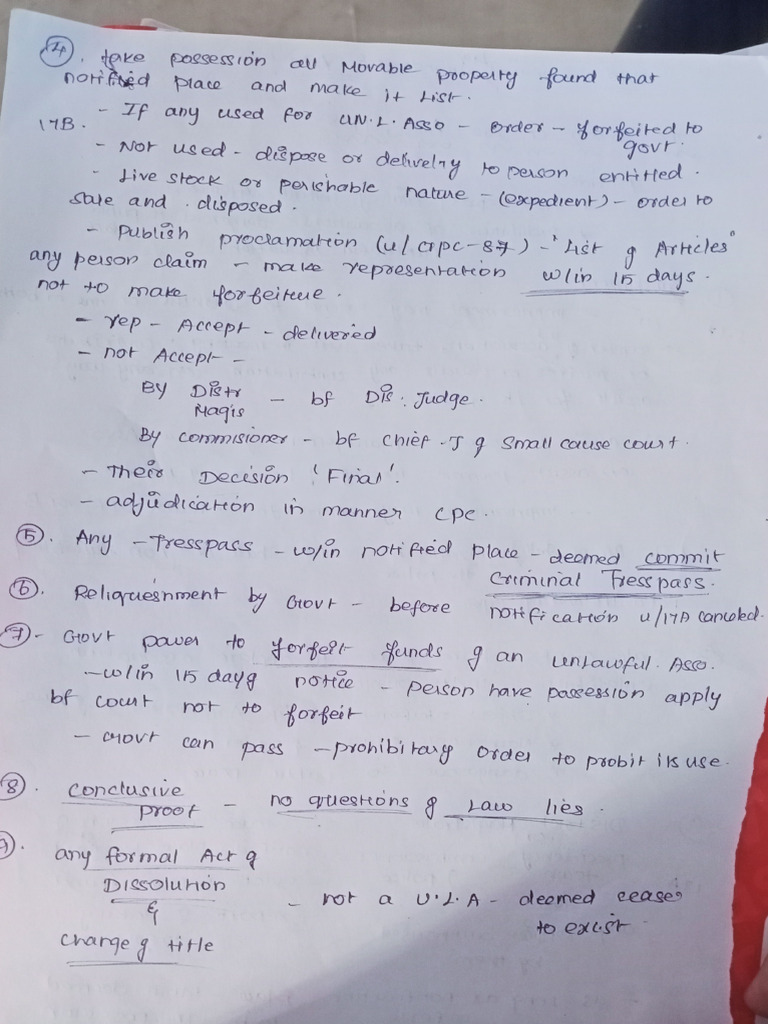 ④. take possession all Movable property found that
notified place and make it List.
- If any used for UN.L.Asso - order - forfeited to
govt.
17B.
- Not used - dispose or delivelry to person entitled.
- Live stock or perishable nature - (expedient) - order to
sale and disposed.
- Publish proclamation (u/ crpc-87) - "List of Articles"
any person claim - make representation w/in 15 days.
not to make forfeitue.
- rep - Accept - delivered
- not Accept -
By Distr Magis - bf Dis: Judge.
By commisioner - bf chief .J of Small cause court.
- Their Decision 'Final'.
- adjudication in manner CPC.
⑤. Any - Tresspass - w/in notified place - deemed commit
Criminal Tresspass.
⑥. Reliquesnment by Govt - before notification u/17A canceled.
⑦- Govt power to forfeit funds of an unlawful. Asso.
- w/in 15 day of notice - person have possession apply
bf court not to forfeit
- Govt can pass - prohibitary order to probit its use.
⑧. Conclusive
proof - no questions of Law lies.
9. any formal Act of
Dissolution
& - not a U.L.A - deemed ceases
to exist.
change of title